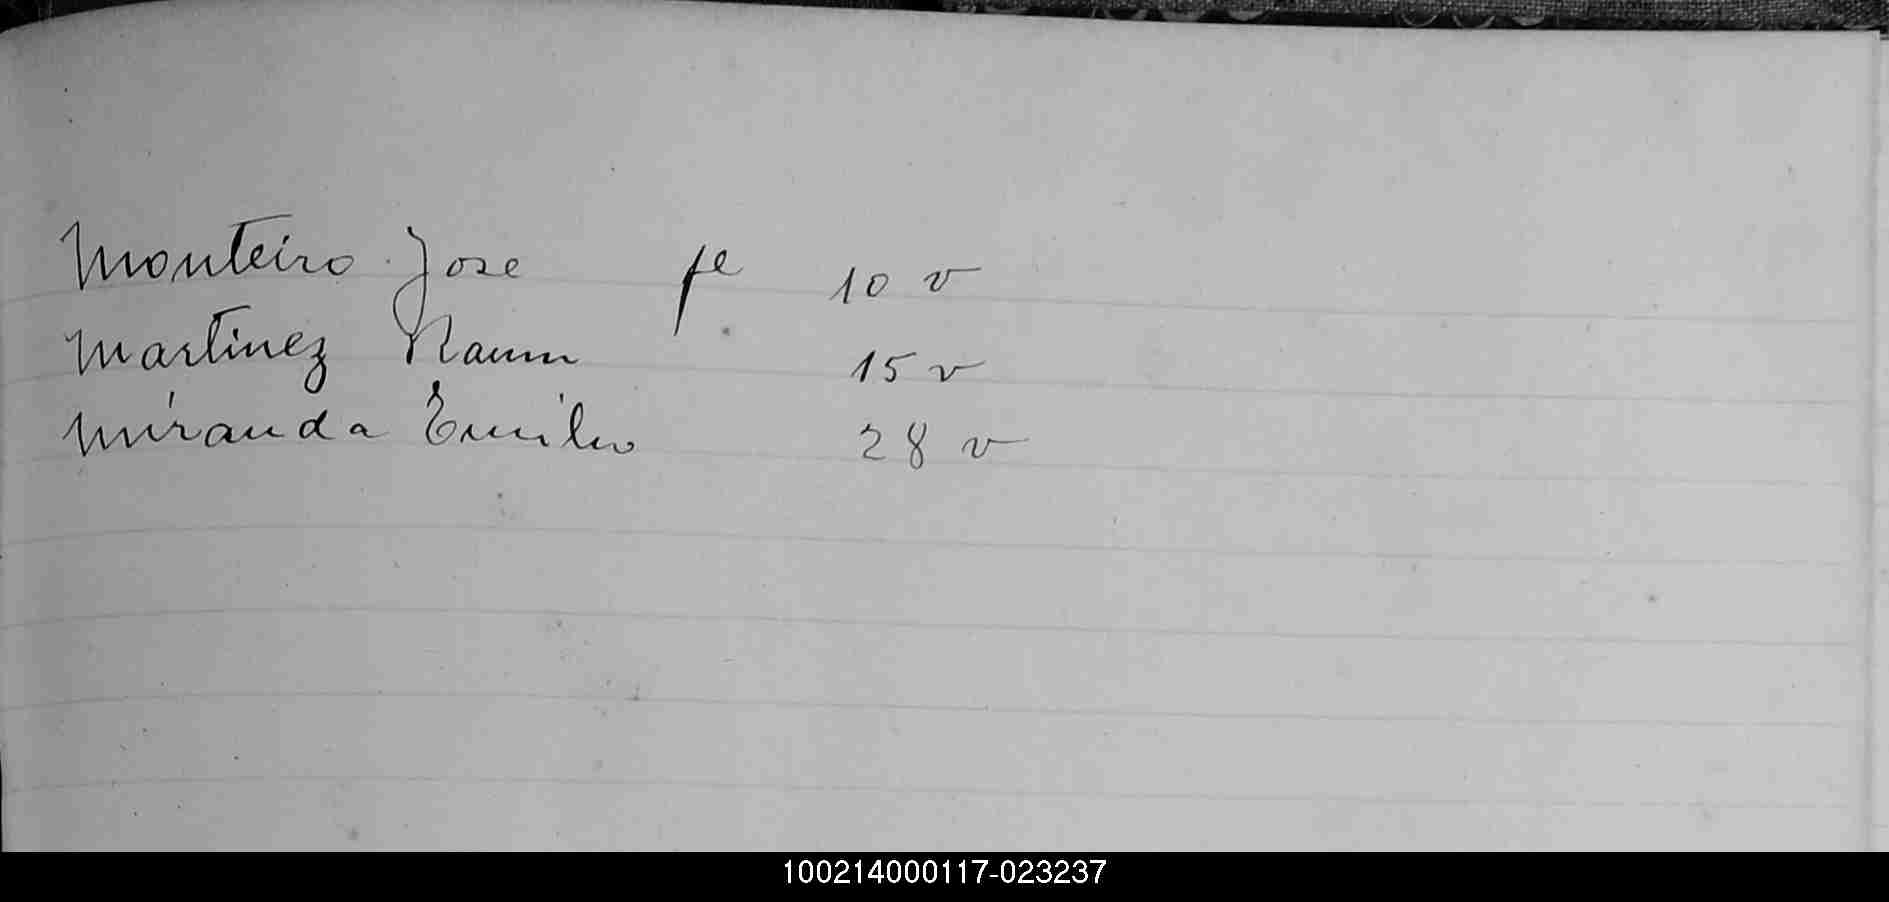 Monteiro Jose fe 10 v
Martinez Naum 15 v
Miranda Emilio 28 v
100214000117-023237